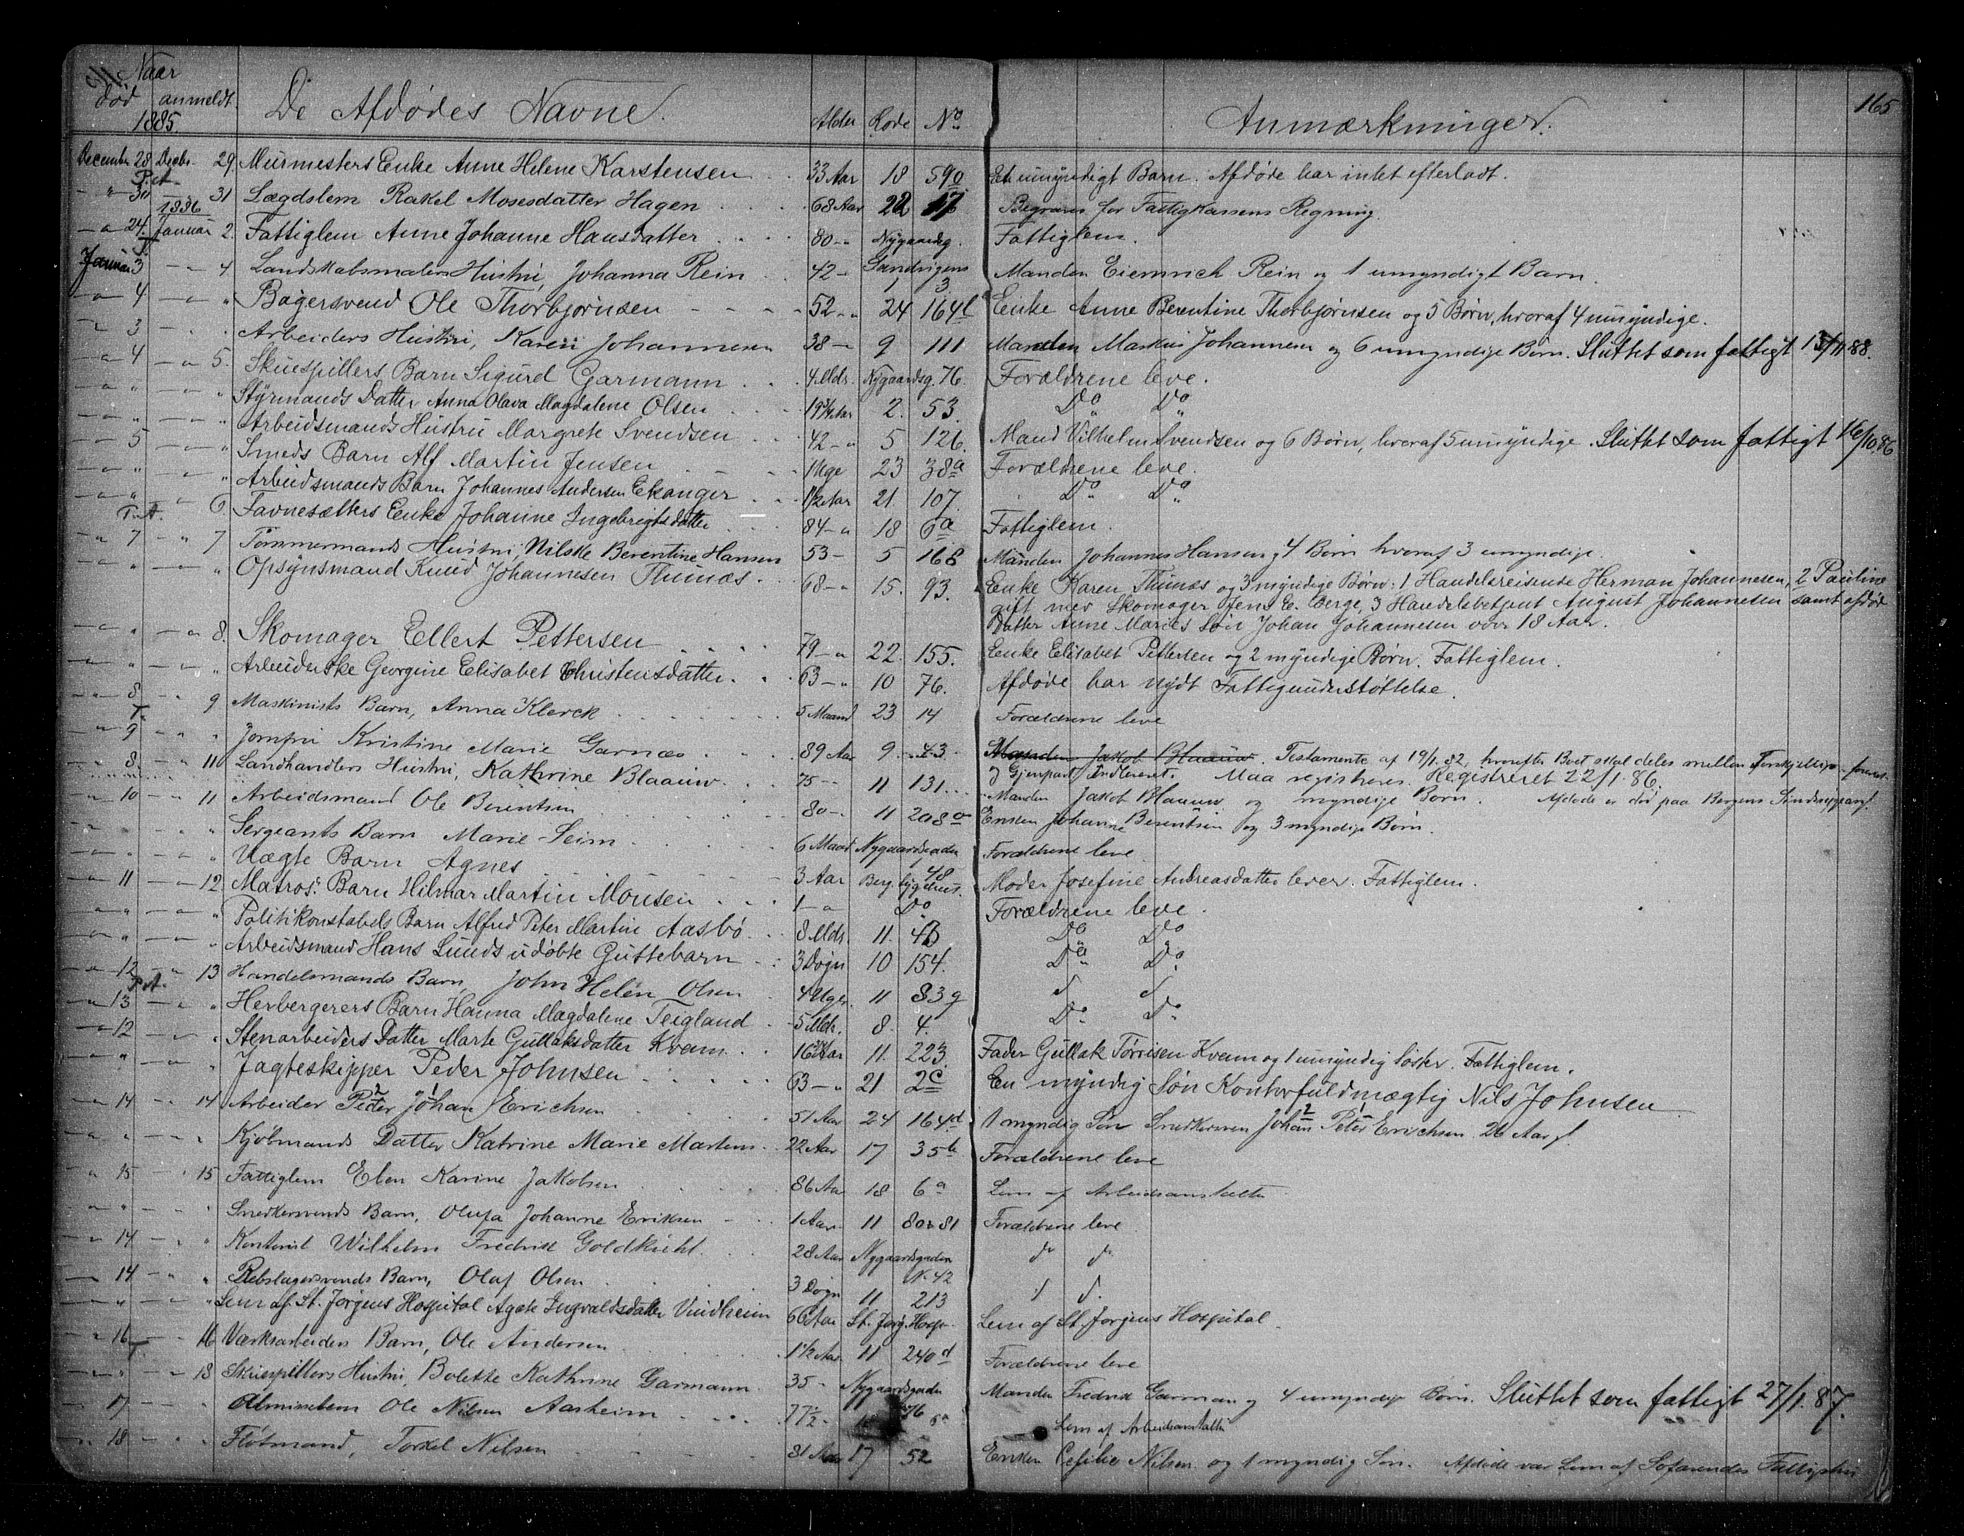 Naar 165
død anmeldt De Afdødes Navne. Alder Rode No Anmærkninger.
1885
December 28 Decbr. 29 Murmesters Enke Anne Helene Karstensen 33 Aar 18 590 Et umyndigt Barn. Afdøde har intet efterladt.
" 30 31 Lægdslem Rakel Mosesdatter Hagen 68 Aar 22 17 Begraves for Fattigkassens Regning.
1886
" 24 Januar 2. Fattiglem Anne Johanne Hansdatter 80 " Nygaardsg. Fattiglem.
Januar 3 4 Landskabsmalers Hustru, Johanna Rein 42 Sandvigens 1 3 Manden Eiemrich Rein og 1 umyndigt Barn.
4 " Bagersvend Ole Thorbjørnsen 52 " 24 164 Enke Anne Berentine Thorbjørnsen og 5 Børn, hvoraf 4 umyndige.
3 " Arbeiders Hustru, Karen Johannesen 38 9 111 Manden Markus Johannesen og 6 umyndige Børn. Sluttet som fattigt 88.
4 5. Skuespillers Barn Sigurd Garmann 4 Mdr. Nygaardsg. 76. Forældrene leve.
" " Styrmands Datter Anna Olava Magdalene Olsen 19 Aar 2. 53. Do Do
" " Arbeidsmands Hustru Margrete Svendsen 42 " 5 126. Mand Vilhelm Svendsen og 6 Børn, hvoraf 5 umyndige. Sluttet som fattigt 16/10 86
5 " Smeds Barn Alf Martin Jensen 1 Uge 23 38a Forældrene leve.
" " Arbeidsmands Barn Johannes Andersen Ekanger 1½ Aar 21 107. Do Do
" 6 Favnesætters Enke Johanne Ingebrigtsdatter 84 " 18 6a Fattiglem.
" 7 " 7 Tømmermands Hustru, Nilske Berentine Hansen 53 5 168 Manden Johannes Hansen og 4 Børn hvoraf 3 umyndige.
" " Opsynsmand Knud Johannesen Thunæs. 68 " 15. 93. Enke Karen Thunæs og 3 myndige Børn: 1 Handelsreisende Herman Johannesen, 2 Pauline
gift med Skomager Jens E. Berge, 3 Handelsbetjent August Johannesen samt afdøde
Datter Anne Maries Søn Johan Johannesen over 18 Aar.
" 8. Skomager Ellert Pettersen 79 " 22. 155. Enke Elisabet Pettersen og 2 myndige Børn. Fattiglem.
" " Arbeiderske Georgine Elisabet Christensdatter. 63 " 10 76. Afdøde har nydt Fattigunderstøttelse.
8 9 Maskinists Barn, Anna Klerck 5 Maand 23 14 Forældrene leve
9 " Jomfru Kristine Marie Garnæs 89 Aar 9 43 Manden Jakob Blaauw. Testamente af 19/1. 82, hvorefter Boet skal deles mellem
og Gjenpart Indleveret. Maa registreres. Registreret 22/1. 86.
8. 11 Landhandlers Hustru, Kathrine Blaauw. 75 11 131 Manden Jakob Blaauw og myndige Børn. Afdøde er død paa Bergens Sindssygeasyl.
10 11 Arbeidsmand Ole Berentsen 80 11 208a Enken Johanne Berentsen og 3 myndige Børn.
" " Sergeants Barn Marie Seim 6 Maand Nygaardsgaden Forældrene leve
" " Uægte Barn Agnes 3 Aar 48 Moder Josefine Andreasdatter lever. Fattiglem.
11 12 Matros. Barn Hilmar Martin Monsen 1 " Do Forældrene leve.
" " Politikonstabels Barn Alfred Peter Martin Aasbø 8 Mdr. 11. 4 Do Do
" " Arbeidsmand Hans Lunds udøbte Guttebarn 3 Døgn 10 154. Do Do.
12 13 Handelsmands Barn, John Helén Olsen 4 Uger. 11 83g d d
13 " Herbergerers Barn Hanna Magdalene Teigland 5 Mdr. 8. 4. Do. Do.
12 " Stenarbeiders Datter Marte Gullaksdatter Kvam 16 Aar 11. 223. Fader Gullak Torrisen Kvam og 1 umyndig Søster. Fattiglem.
" " Jagteskipper Peder Johnsen 63 " 21 2c En myndig Søn Kontorfuldmægtig Nils Johnsen
14 14 Arbeider Peder Johan Erichsen 51 Aar 24 164d 1 myndig Søn Snedkersven Johan Peter Erichsen 26 Aar gl.
" " Kjøbmands Datter Katrine Marie Martens 22 Aar 17 35b Forældrene leve
" 15 15 Fattiglem Elen Karine Jakobsen 86 Aar 18 6a Lem af Arbeidsanstalten
" " Snedkersvends Barn, Olufa Johanne Eriksen 1 Aar 11 80 & 81 Forældrene leve
14 " Kontorist Wilhelm Fredrik Goldkuhl 28 Aar Nygaardsgaden N. 42 d d
14 " Rebslagersvends Barn, Oluf Olsen 3 Døgn 11 213 d d.
" " Lem af St. Jørgens Hospital Agate Ingvaldsdatter Vindheim 66 Aar St. Jørg. Hosp. Lem af St. Jørgens Hospital.
16 16 Værksarbeiders Barn, Ole Andersen 1½ Aar 11 240d Forældrene leve
18 Skuespillers Hustru, Bolette Kathrine Garmann 35 Nygaardsgaden 76 Manden Fredrik Garman og 4 umyndige Børn. Sluttet som fattigt 27/1. 87.
17 Almisselem Ole Nilsen Aasheim 77½ Lem af Arbeidsanstalten
18 Fløtmand, Torkel Nilsen 81 Aar 17 52 Enken Cesilie Nilsen og 1 myndig Søn. Afdøde var Lem af Søfarendes Fattighus